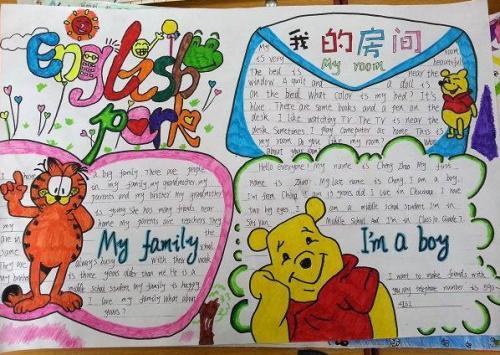 English
park
我的房间
My room
My room
is very beautiful
The bed is near the
window. A quilt and a doll is
on the bed. What color is my bed? It's
blue. There are some books and a pen on the
desk. I like watching TV. The TV is near the
desk. Sometimes I play computer at home. This is
my room. Do you like my room? What
about you
I have a big family. There are people
in my family, my grandmother, my
parents and my brother. My grandmother
is young. She has many friends near
my home. My parents are teachers. They
are the
in school.
They are always busy with their work.
My brother is three years older than me. He is a
middle school student. My family is happy.
I love my family. What about
yours?
My family
Hello everyone! My name is Cheng Zhao. My first
name is Zhao. My last name is Cheng. I am a boy.
I'm from China. I am 13 years old. I live in I have
two big eyes. I am a middle school student. I'm in
Middle School and I'm in Class 10 Grade 7.
I'm a boy
I want to make friends with
you. My telephone number is